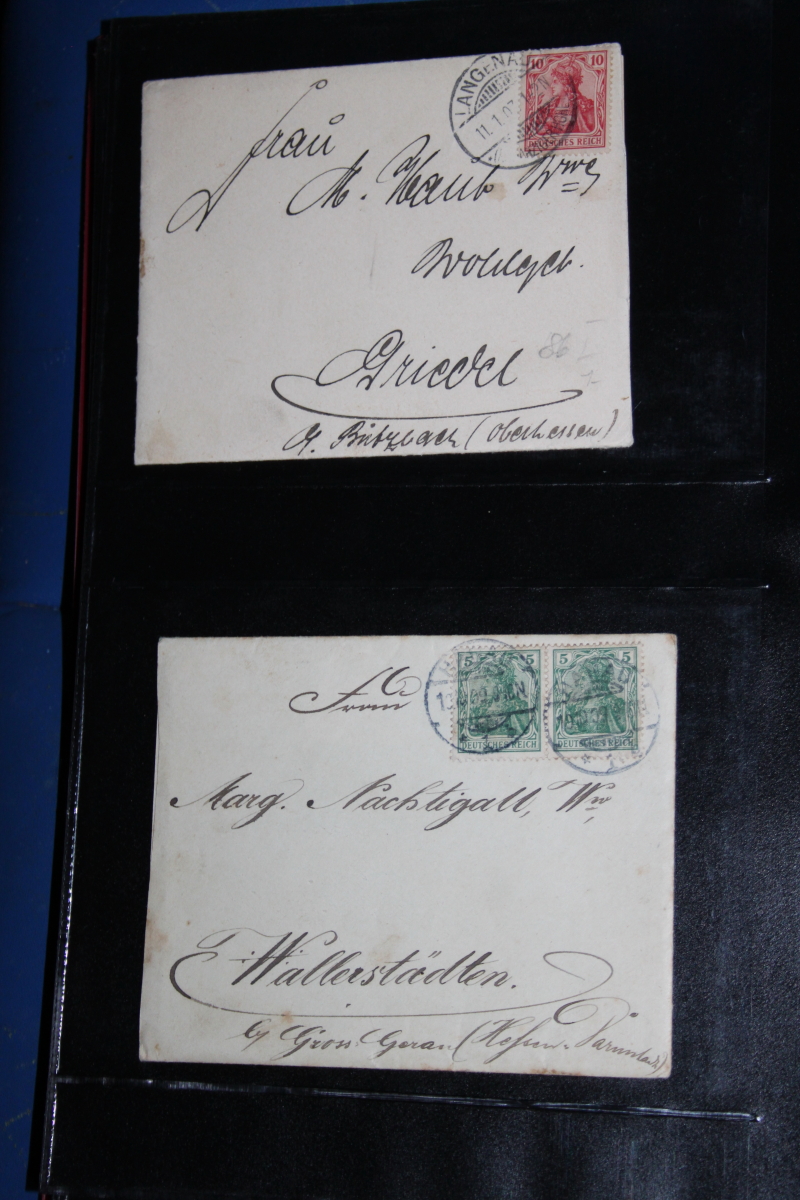 LANGENAU
11.1.07
10 10
DEUTSCHES REICH
Frau
M. Haub Wwe
Wohlgeb.
Griedel
b/ Butzbach (Oberhessen)
86
5 5
DEUTSCHES REICH
5 5
DEUTSCHES REICH
Frau
Marg. Nachtigall, Ww,
Wallerstädten.
b/ Gross Gerau (Hessen-Darmstadt)